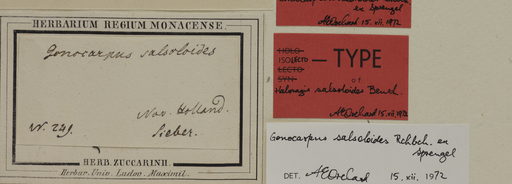 HERBARIUM REGIUM MONACENSE.
Gonocarpus salsoloides
Nov. Holland.
N. 249.
Sieber.
HERB. ZUCCARINII.
Herbar. Univ. Ludov. Maximil.
ex Sprengel
AEOrchard 15.xii.1972
HOLO
ISOLECTO
LECTO
SYN
— TYPE
of
Haloragis salsoloides Benth.
AEOrchard 15.xii.1972
Gonocarpus salsoloides Rchb. ex
Sprengel
DET. AEOrchard 15.xii.1972